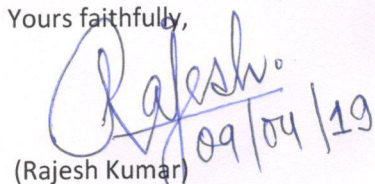 Yours faithfully,
Rajesh.
09/04/19
(Rajesh Kumar)